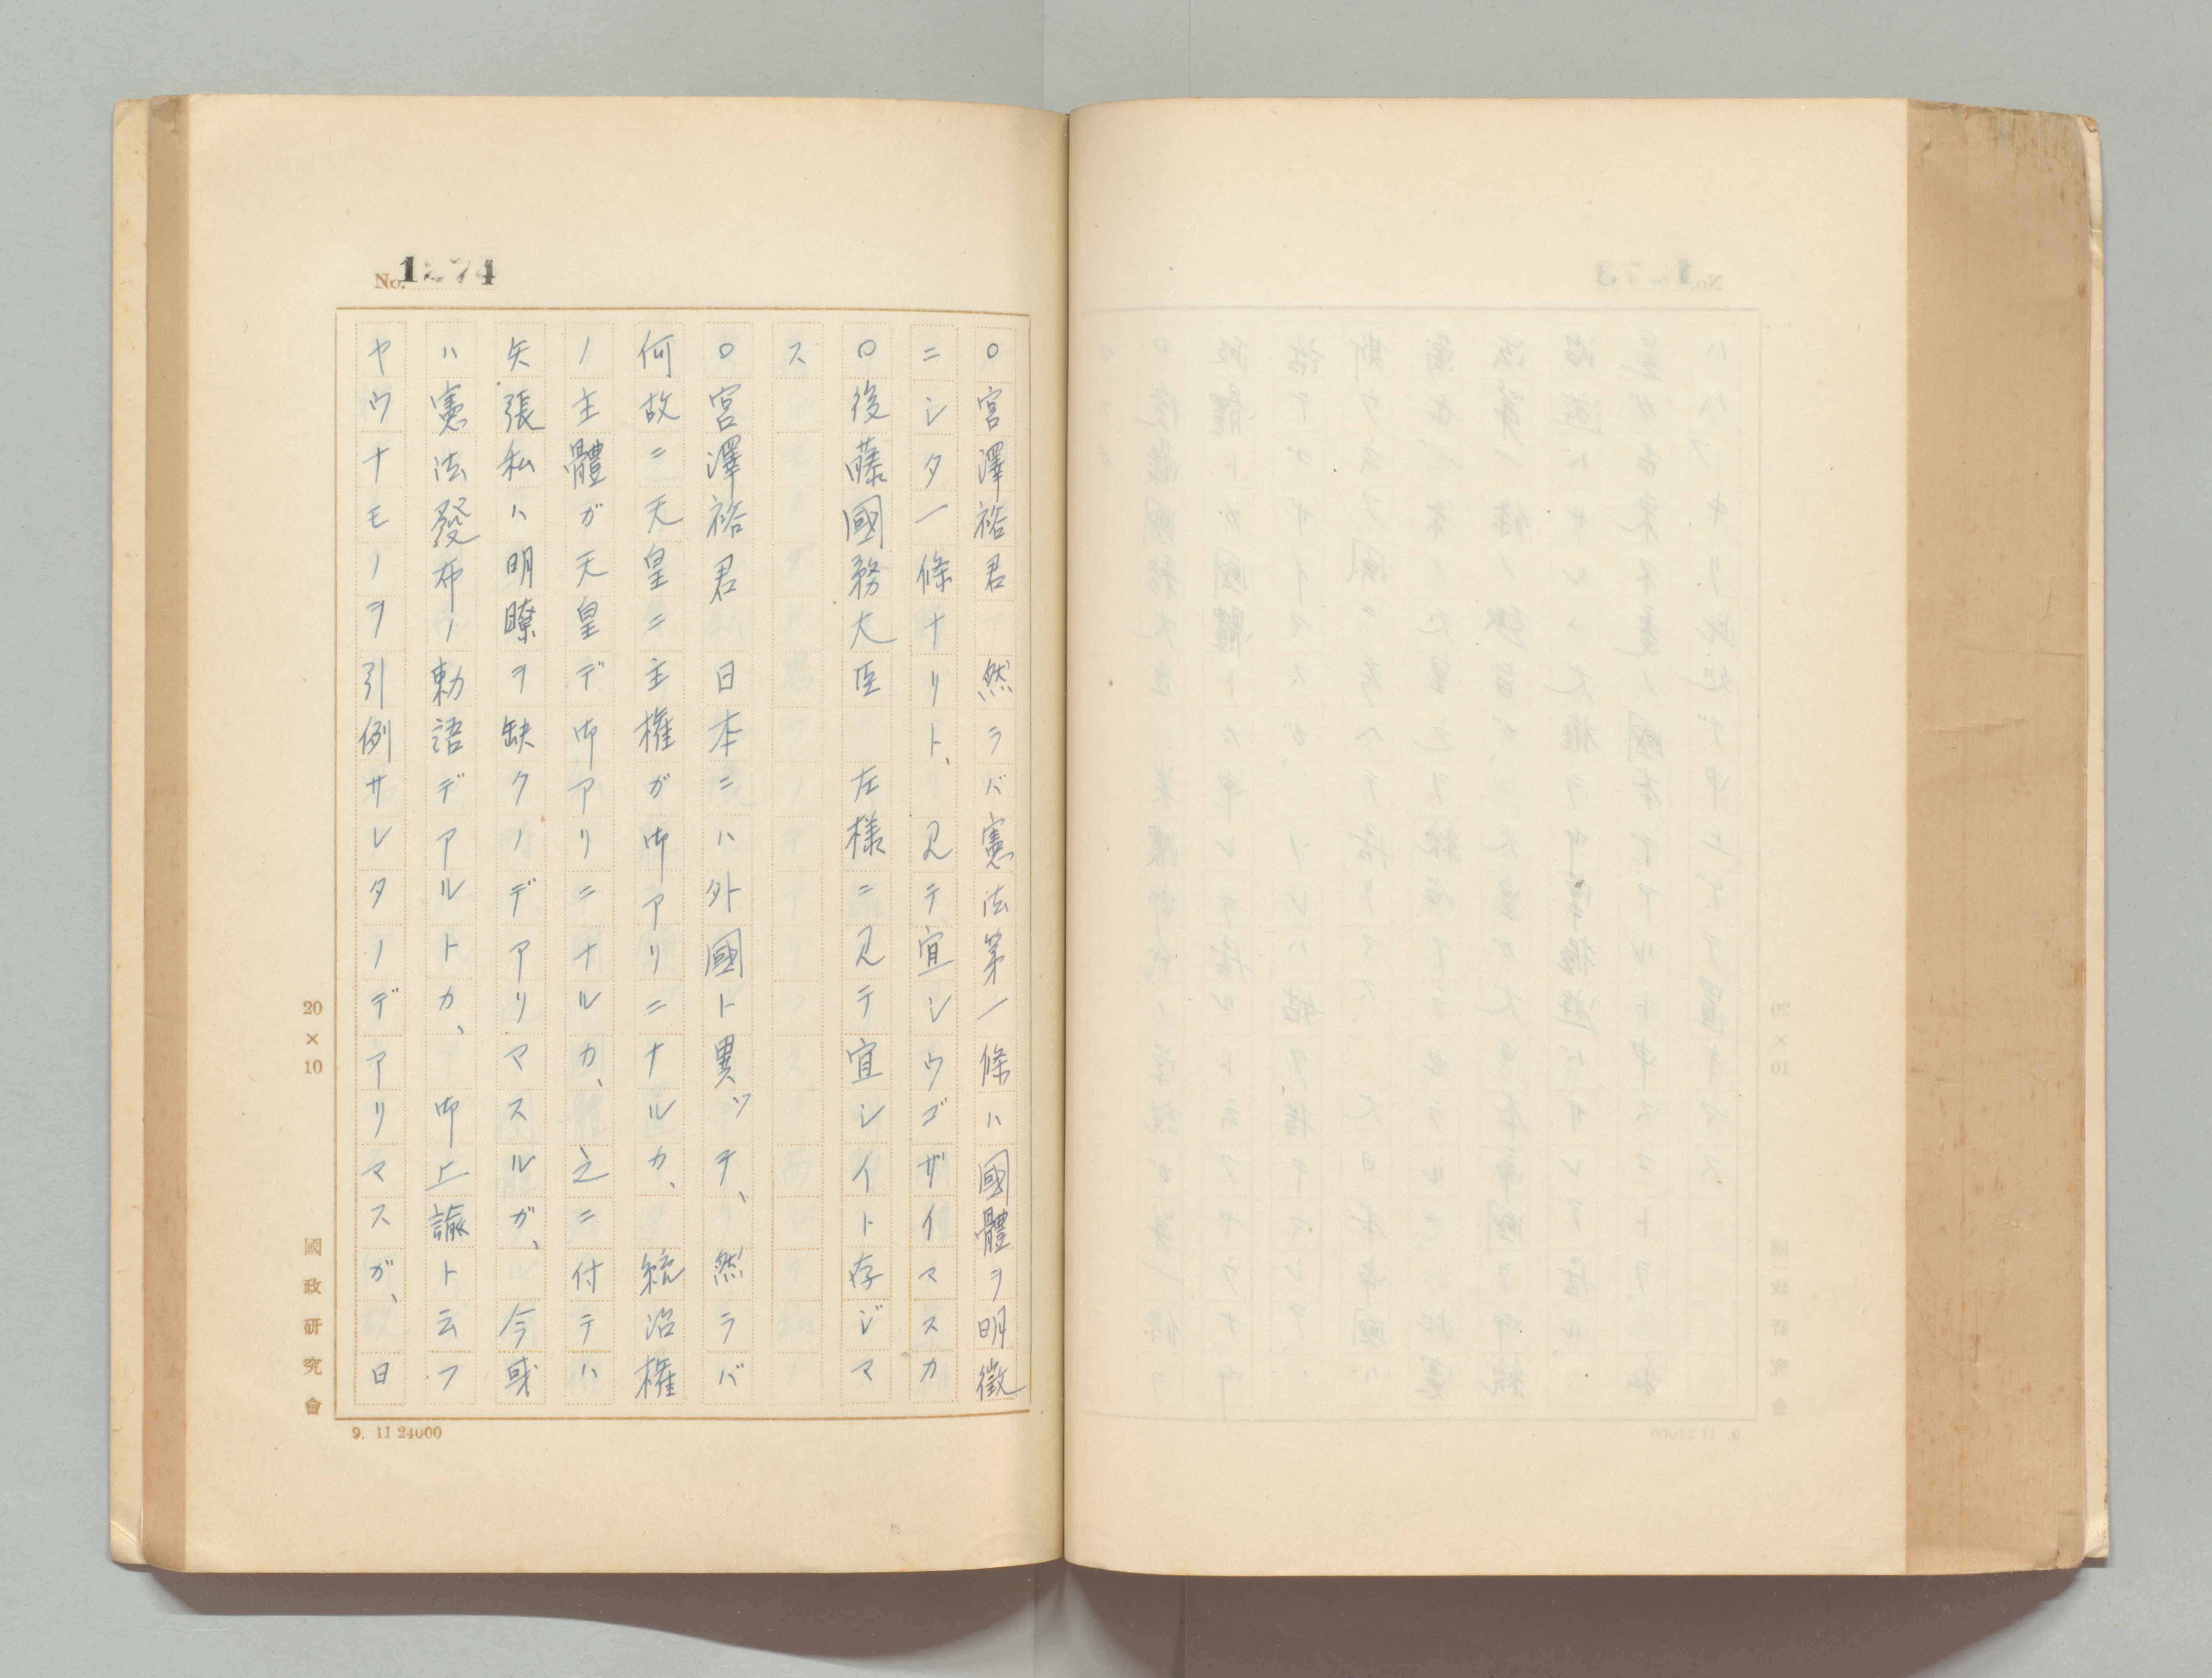 No. 1274
○宮澤裕君　然ラバ憲法第一條ハ國體ヲ明徵
ニシタ一條ナリト、見テ宜シウゴザイマスカ
○後藤國務大臣　左様ニ見テ宜シイト存ジマ
ス
○宮澤裕君　日本ニハ外國ト異ッテ、然ラバ
何故ニ天皇ニ主權ガ御アリニナルカ、統治權
ノ主體ガ天皇デ御アリニナルカ、之ニ付テハ
矢張私ハ明瞭ヲ缺クノデアリマスルガ、今或
ハ憲法發布ノ勅語デアルトカ、御上諭ト云フ
ヤウナモノヲ引例サレタノデアリマスガ、日
20×10
國政研究會
9. 11 24000